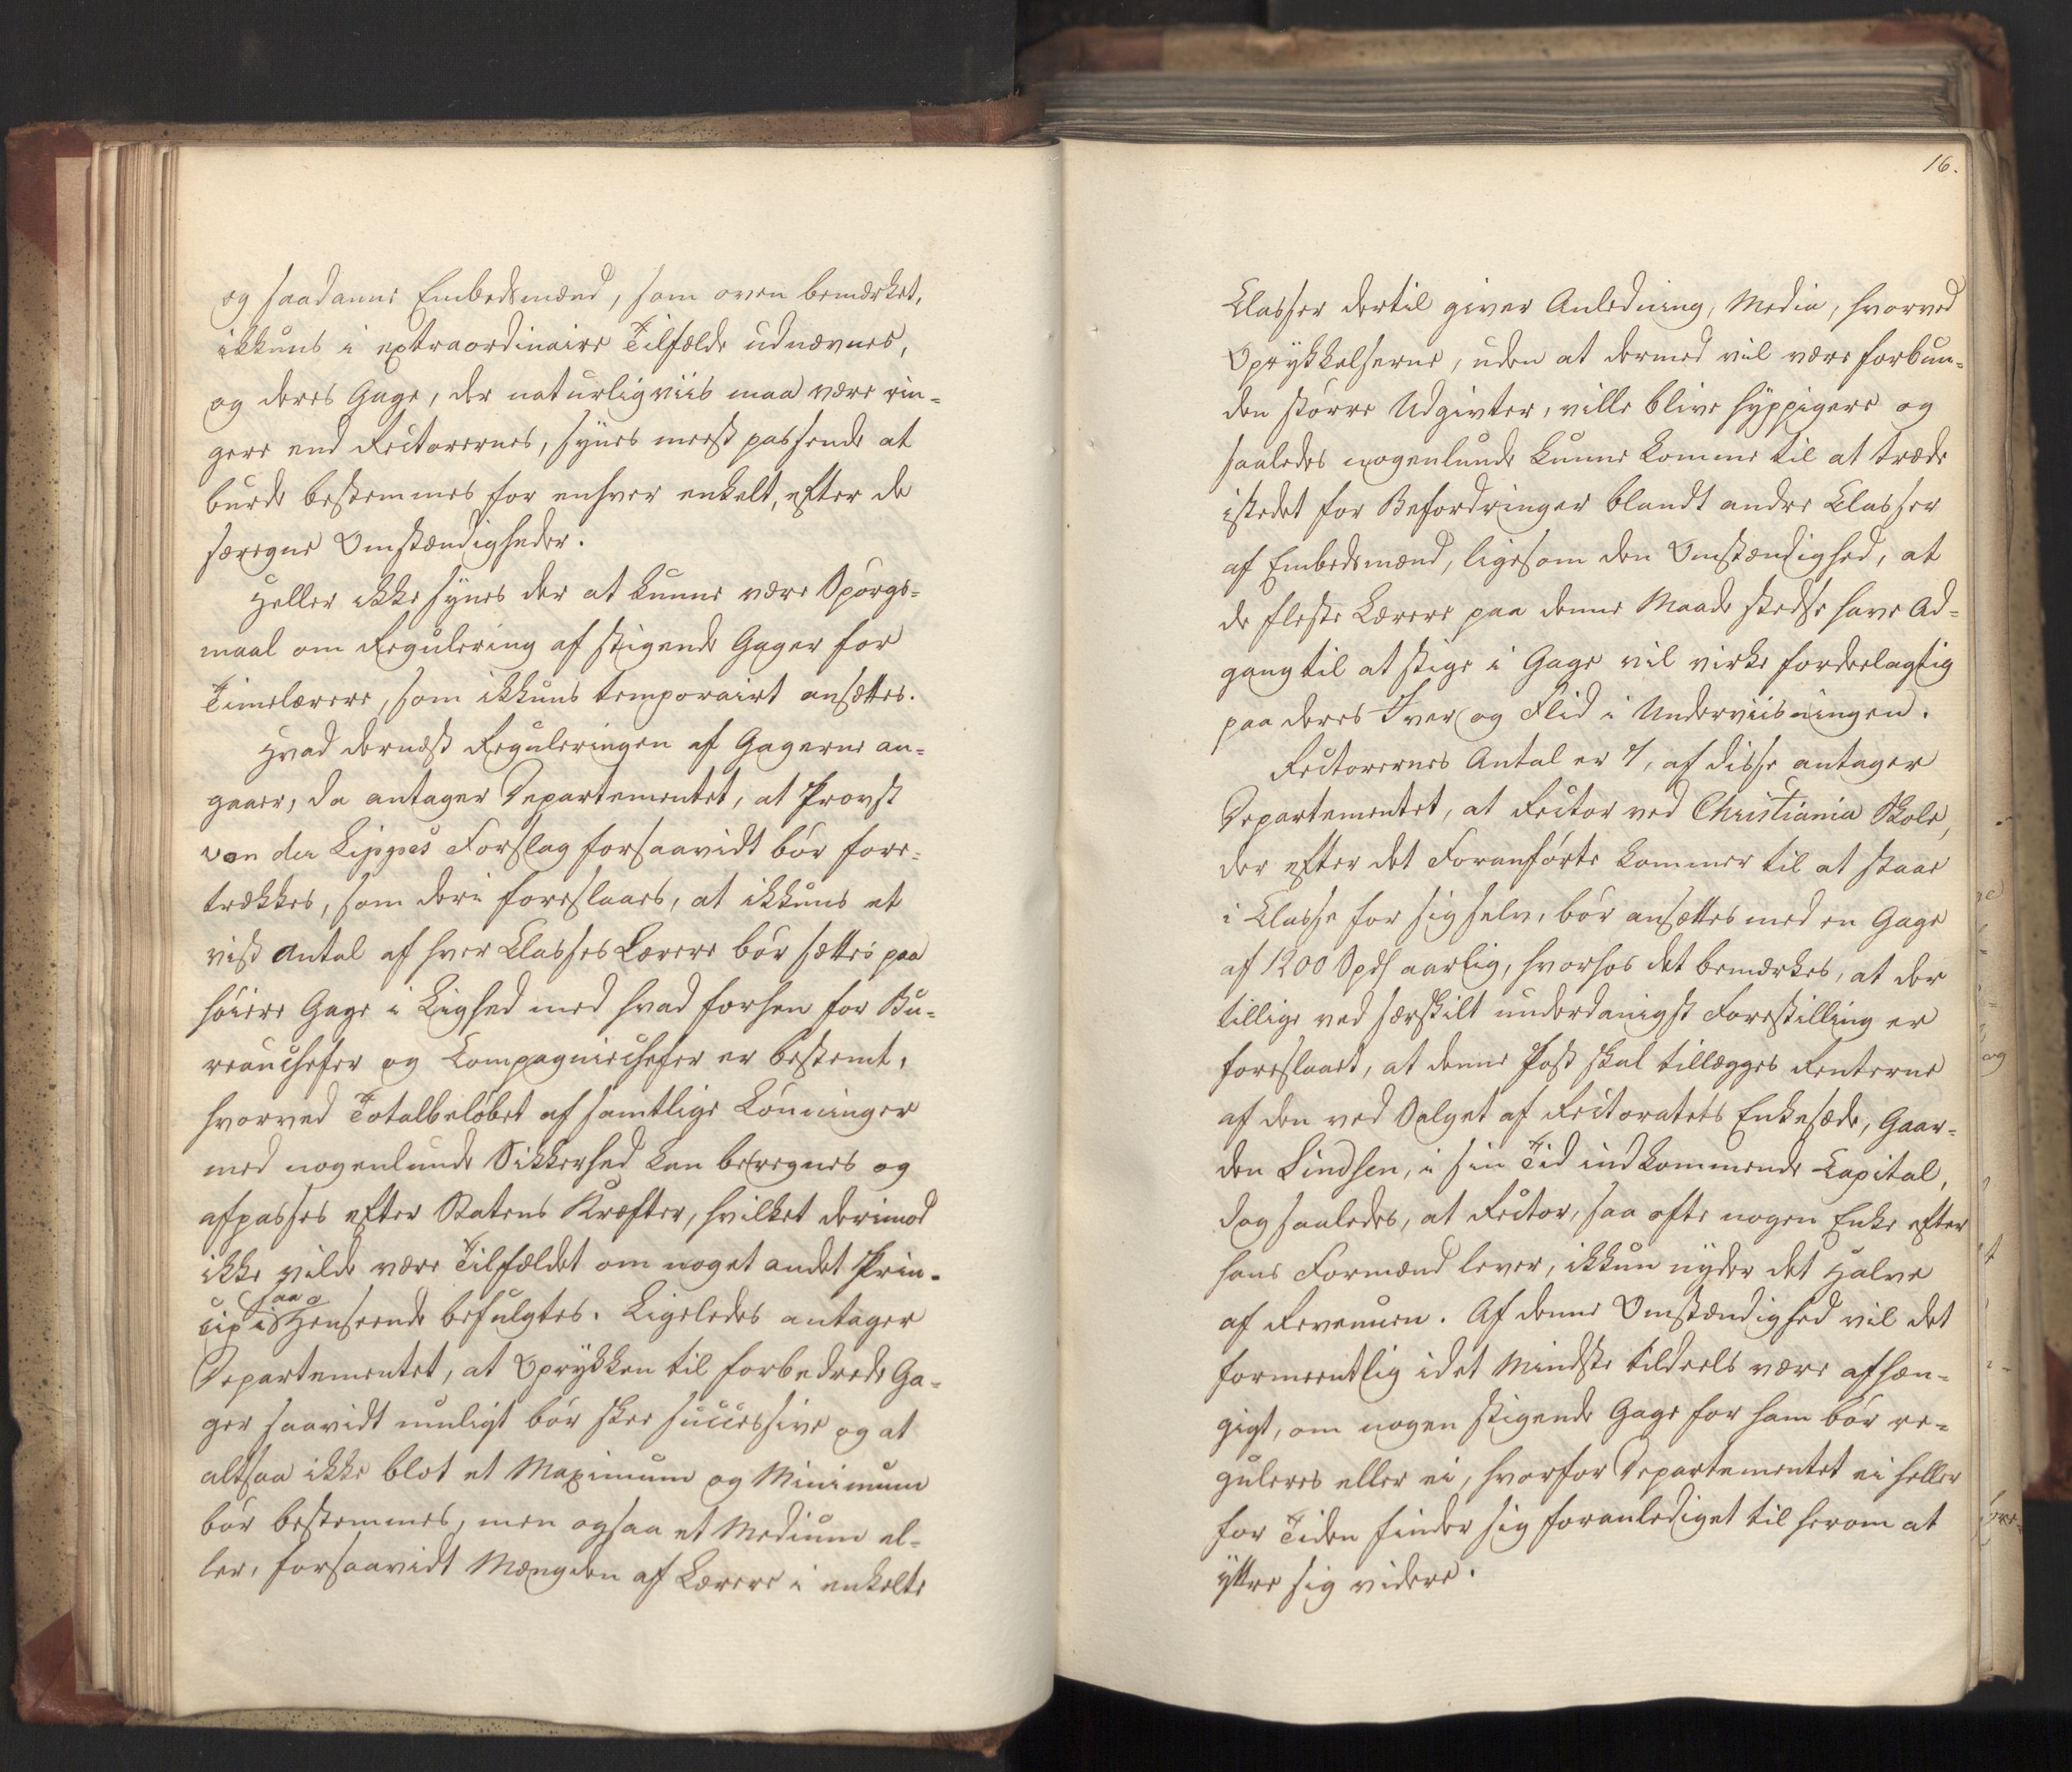 og saadanne Embedsmænd, som oven bemærket,
ikkuns i extraordinaire Tilfælde udnævnes,
og deres Gage, der naturligviis maa være rin-
gere end Rectorernes, synes meest passende at
burde bestemmes for enhver enkelt, efter de
særegne Omstændigheder.
Heller ikke synes der at kunne være Spørgs-
maal om Regulering af stigende Gager for
Timelærere, som ikkuns temporairt ansættes.
Hvad dernæst Reguleringen af Gagerne an-
gaaer, da antager Departementet, at Provst
von der Lippes Forslag forsaavidt bør fore-
trækkes, som deri foreslaaes, at ikkuns et
vist Antal af hver Classes Lærere bør sættes paa
høiere Gage i Lighed med hvad forhen for Bu-
reauchefer og Compagniechefer er bestemt,
hvorved Totalbeløbet af samtlige Lønninger
med nogenlunde Sikkerhed kan beregnes og
afpasses efter Statens Kræfter, hvilket derimod
ikke vilde være Tilfældet om noget andet Prin-
cip i saa Henseende befulgtes. Ligeledes antager
Departementet, at Oprykken til forbedrede Ga-
ger saavidt muligt bør skee successive og at
altsaa ikke blot et Maximum og Minimum
bør bestemmes, men ogsaa et Medium el-
ler, forsaavidt Mængden af Lærere i enkelte
16.
Classer dertil giver Anledning, Media, hvorved
Oprykkelserne, uden at dermed vil være forbun-
den større Udgivter, ville blive hyppigere og
saaledes nogenlunde kunne komme til at træde
istedet for Befordringer blandt andre Classer
af Embedsmænd, ligesom den Omstændighed, at
de fleste Lærere paa denne Maade stedse have Ad-
gang til at stige i Gage vil virke fordeelagtig
paa deres Iver og Flid i Underviisningen.
Rectorernes Antal er 7, af disse antager
Departementet, at Rector ved Christiania Skole,
der efter det Foranførte kommer til at staae
i Classe for sig selv, bør ansættes med en Gage
af 1200 Spd aarlig, hvorhos det bemærkes, at der
tillige ved særskilt underdanigst Forestilling er
foreslaaet, at denne Post skal tillægges Renterne
af den ved Salget af Rectoratets Enkesæde, Gaar-
den Lindsen, i sin Tid indkommende Capital,
dog saaledes, at Rector, saa ofte nogen Enke efter
hans Formænd lever, ikkun nyder det Halve
af Revenuen. Af denne Omstændighed vil det
formeentlig idet Mindste tildeels være afhæn-
gigt, om nogen stigende Gage for ham bør re-
guleres eller ei, hvorfor Departementet ei heller
for Tiden finder sig foranlediget til herom at
yttre sig videre.